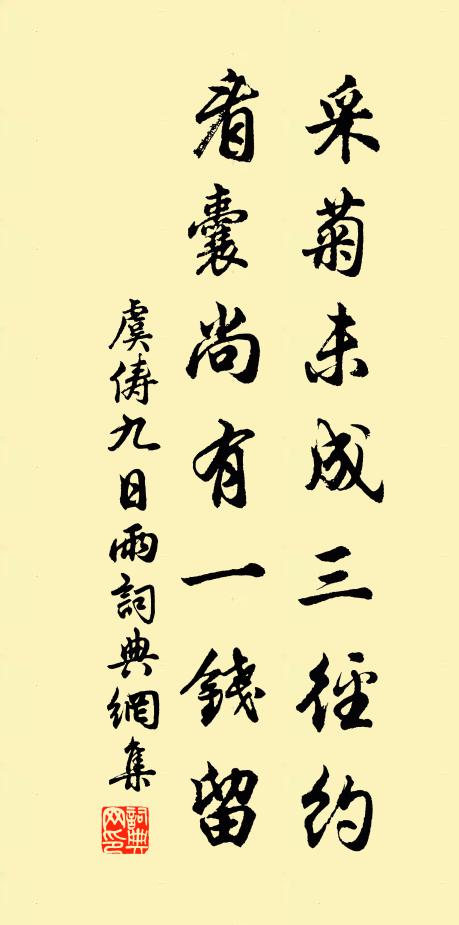 采菊未成三徑約
看囊尚有一錢留
虞儔九日雨詞典網集
詞典网印